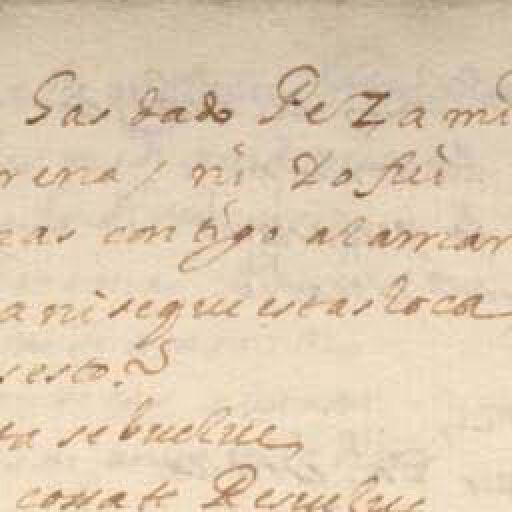 Gas dado Pe Z a mi
rena / ni Yo fui
nas contigo a la mar
a ni se que estas loca
s esto?
ta se buelue
cossa te Reuelue